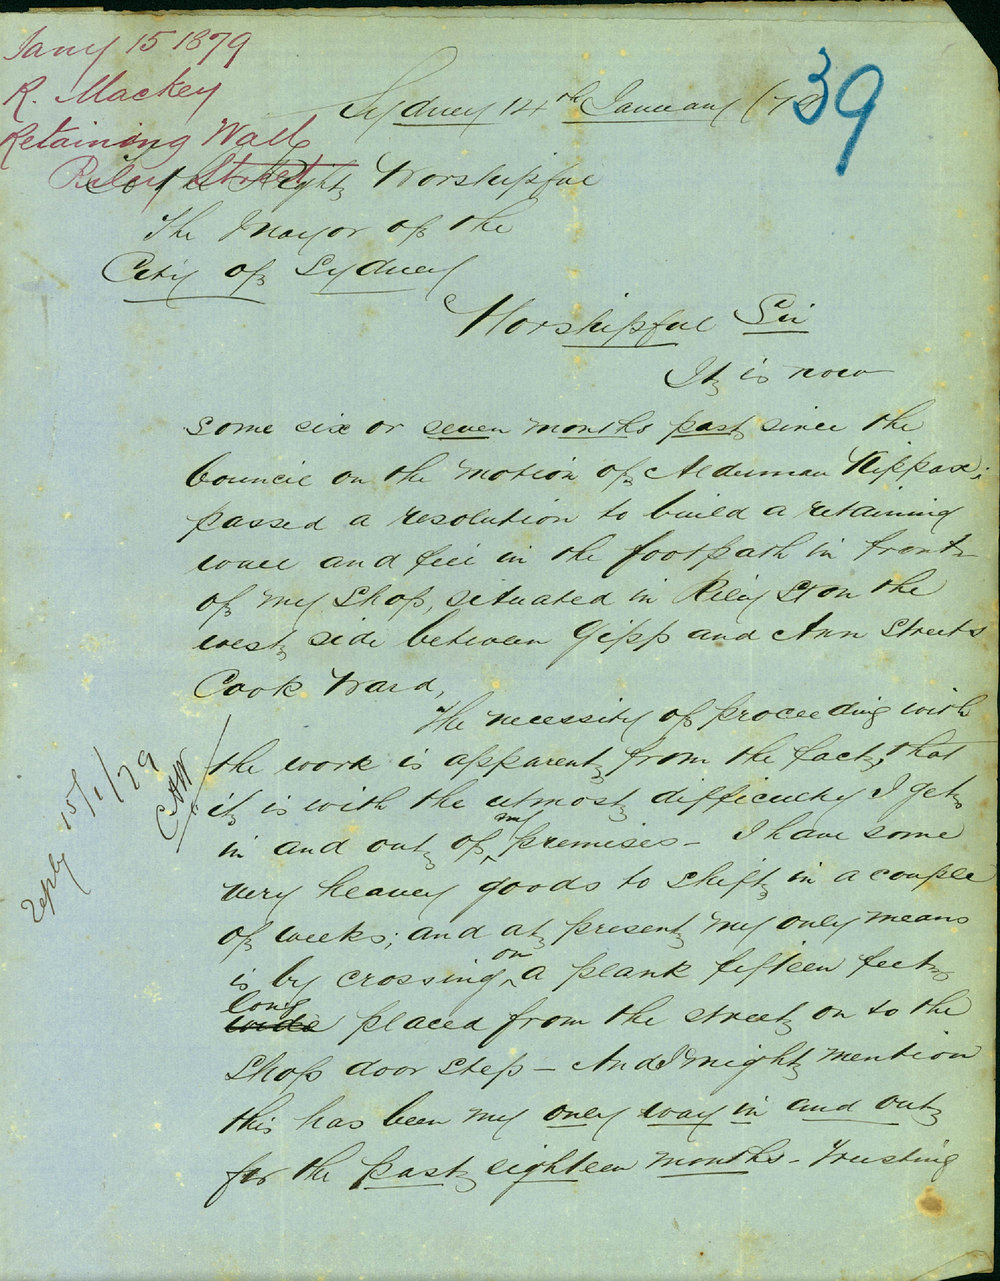 Jany 15 1879
R. Mackey
Retaining Wall
Riley Street
39
Sydney 14th January
To the Right Worshipful
The Mayor of the
City of Sydney
Worshipful Sir
It is now
some six or seven months past since the
Council on the motion of Alderman Kippax
passed a resolution to build a retaining
wall and fill in the footpath in front
of my shop, situated in Riley St on the
west side between Gipp and Ann Streets
Cook Ward,
The necessity of proceeding with
the work is apparent from the fact, that
it is with the utmost difficulty I get
in and out of my premises - I have some
very heavey goods to shift in a couple
of weeks; and at present my only means
is by crossing on a plank fifteen feet
long wide placed from the street on to the
shop door step - And I might mention
this has been my only way in and out
for the past eighteen months - Trusting
reply 15/1/79